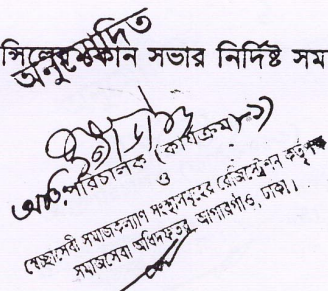 অনুমোদিত
ন্সিলের কোন সভার নির্দিষ্ট সম
অতিঃ পরিচালক (কার্যক্রম)
ও
স্বেচ্ছাসেবী সমাজকল্যাণ সংস্থাসমূহের রেজিস্ট্রেশন কর্তৃপক্ষ
সমাজসেবা অধিদফতর, আগারগাঁও, ঢাকা।